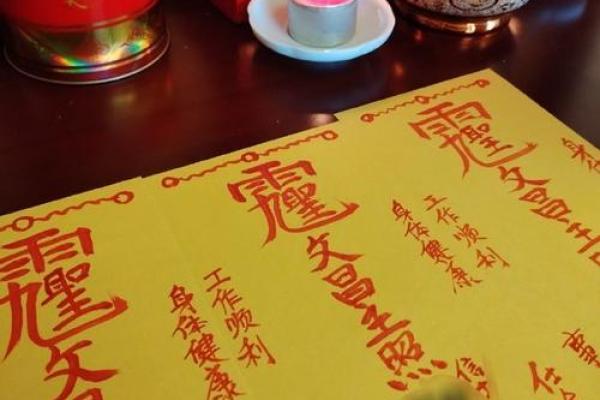 文
工作顺利
身体健康
文昌主照
工作顺利
身体健康
文昌主
身
事